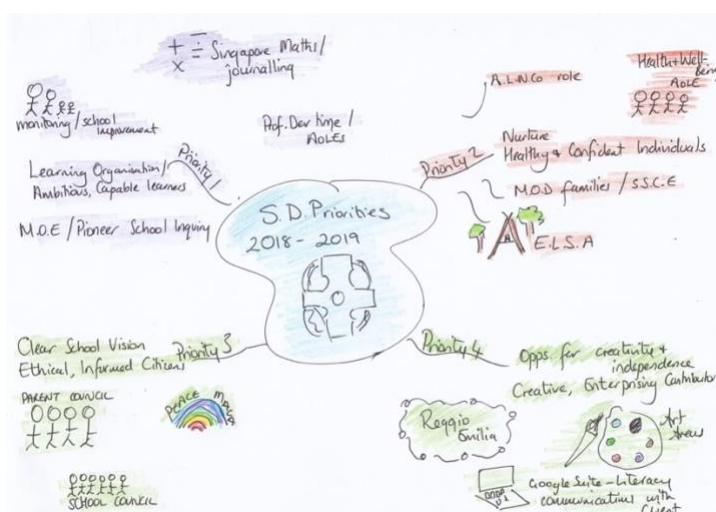 + − ÷ x Singapore Maths/
journalling
monitoring/school
improvement
Prof. Dev time/
AOLES
Learning Organisation/
Ambitious, Capable learners
Priority 1
M.O.E/Pioneer School Inquiry
A.L.N.Co role
Health+Well-
Being
AOLE
Priority 2
Nurture
Healthy & Confident Individuals
M.O.D families/S.S.C.E
E.L.S.A
S.D. Priorities
2018-2019
Clear School Vision
Ethical, Informed Citizens
Priority 3
PARENT COUNCIL
PEACE
SCHOOL COUNCIL
Priority 4
Opps for creativity +
independence
Creative, Enterprising Contributors
Reggio
Emilia
Art
Areas
Google Suite - Literacy
communication with